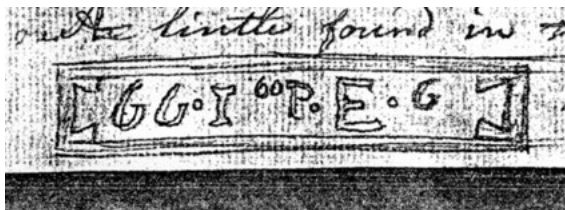 lintle found in
GG·I 60P.E·G